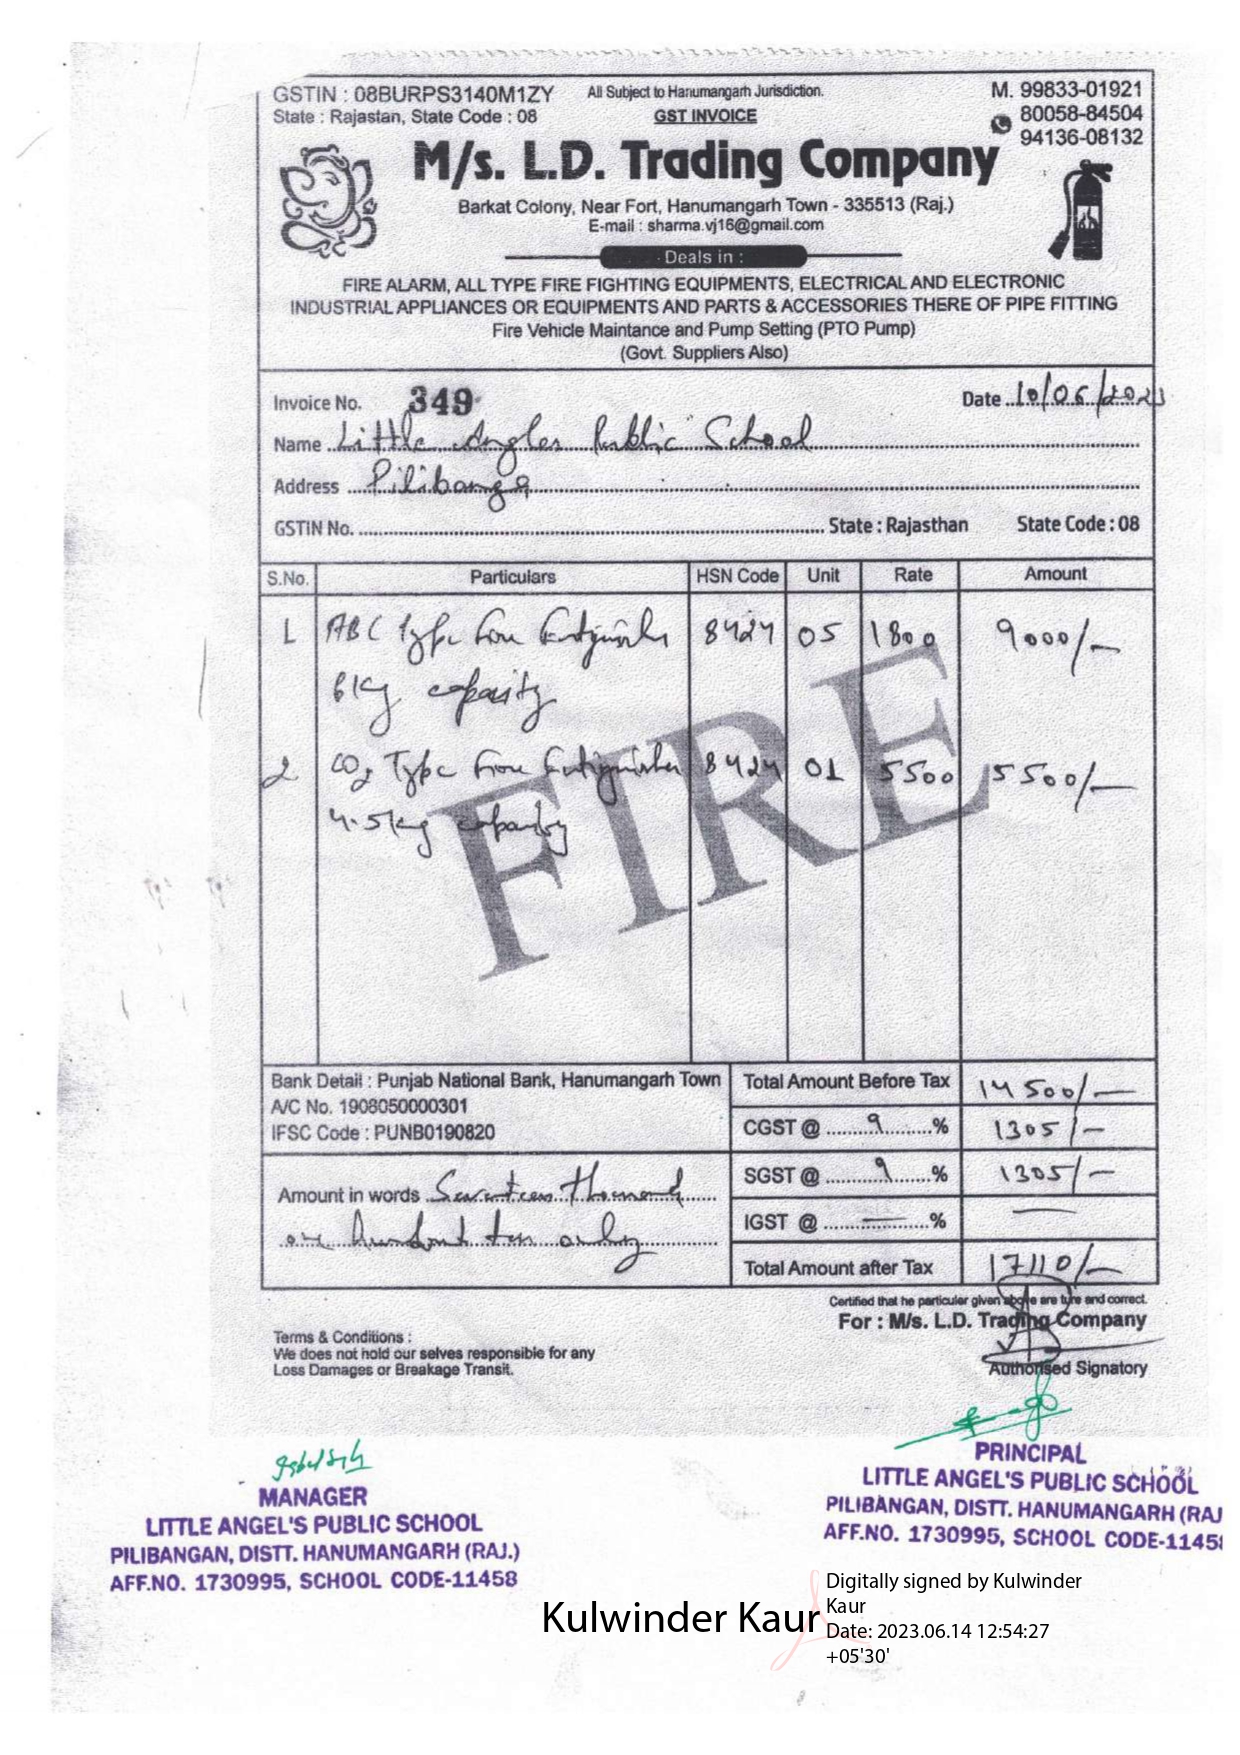 GSTIN : 08BURPS3140M1ZY
All Subject to Hanumangarh Jurisdiction.
M. 99833-01921
State : Rajastan, State Code : 08
GST INVOICE
80058-84504
94136-08132
M/s. L.D. Trading Company
Barkat Colony, Near Fort, Hanumangarh Town - 335513 (Raj.)
E-mail : sharma.vj16@gmail.com
Deals in :
FIRE ALARM, ALL TYPE FIRE FIGHTING EQUIPMENTS, ELECTRICAL AND ELECTRONIC
INDUSTRIAL APPLIANCES OR EQUIPMENTS AND PARTS & ACCESSORIES THERE OF PIPE FITTING
Fire Vehicle Maintance and Pump Setting (PTO Pump)
(Govt. Suppliers Also)
Invoice No. 349
Date 10/06/2023
Name Little Angles Public School
Address Pilibanga
GSTIN No. State : Rajasthan State Code : 08
S.No. Particulars HSN Code Unit Rate Amount
1 ABC Type Fire Extinguisher 8424 05 1800 9000/-
6Kg capacity
2 CO2 Type Fire Extinguisher 8424 01 5500 5500/-
4.5kg capacity
FIRE
Bank Detail : Punjab National Bank, Hanumangarh Town
A/C No. 1908050000301
IFSC Code : PUNB0190820
Total Amount Before Tax 14500/-
CGST @ 9 % 1305/-
SGST @ 9 % 1305/-
IGST @ — % —
Total Amount after Tax 17110/-
Amount in words Seventeen thousand
one hundred ten only
Certified that he particuler given above are ture and correct.
For : M/s. L.D. Trading Company
Authorised Signatory
Terms & Conditions :
We does not hold our selves responsible for any
Loss Damages or Breakage Transit.
PRINCIPAL
LITTLE ANGEL'S PUBLIC SCHOOL
PILIBANGAN, DISTT. HANUMANGARH (RAJ
AFF.NO. 1730995, SCHOOL CODE-11458
MANAGER
LITTLE ANGEL'S PUBLIC SCHOOL
PILIBANGAN, DISTT. HANUMANGARH (RAJ.)
AFF.NO. 1730995, SCHOOL CODE-11458
Kulwinder Kaur
Digitally signed by Kulwinder
Kaur
Date: 2023.06.14 12:54:27
+05'30'